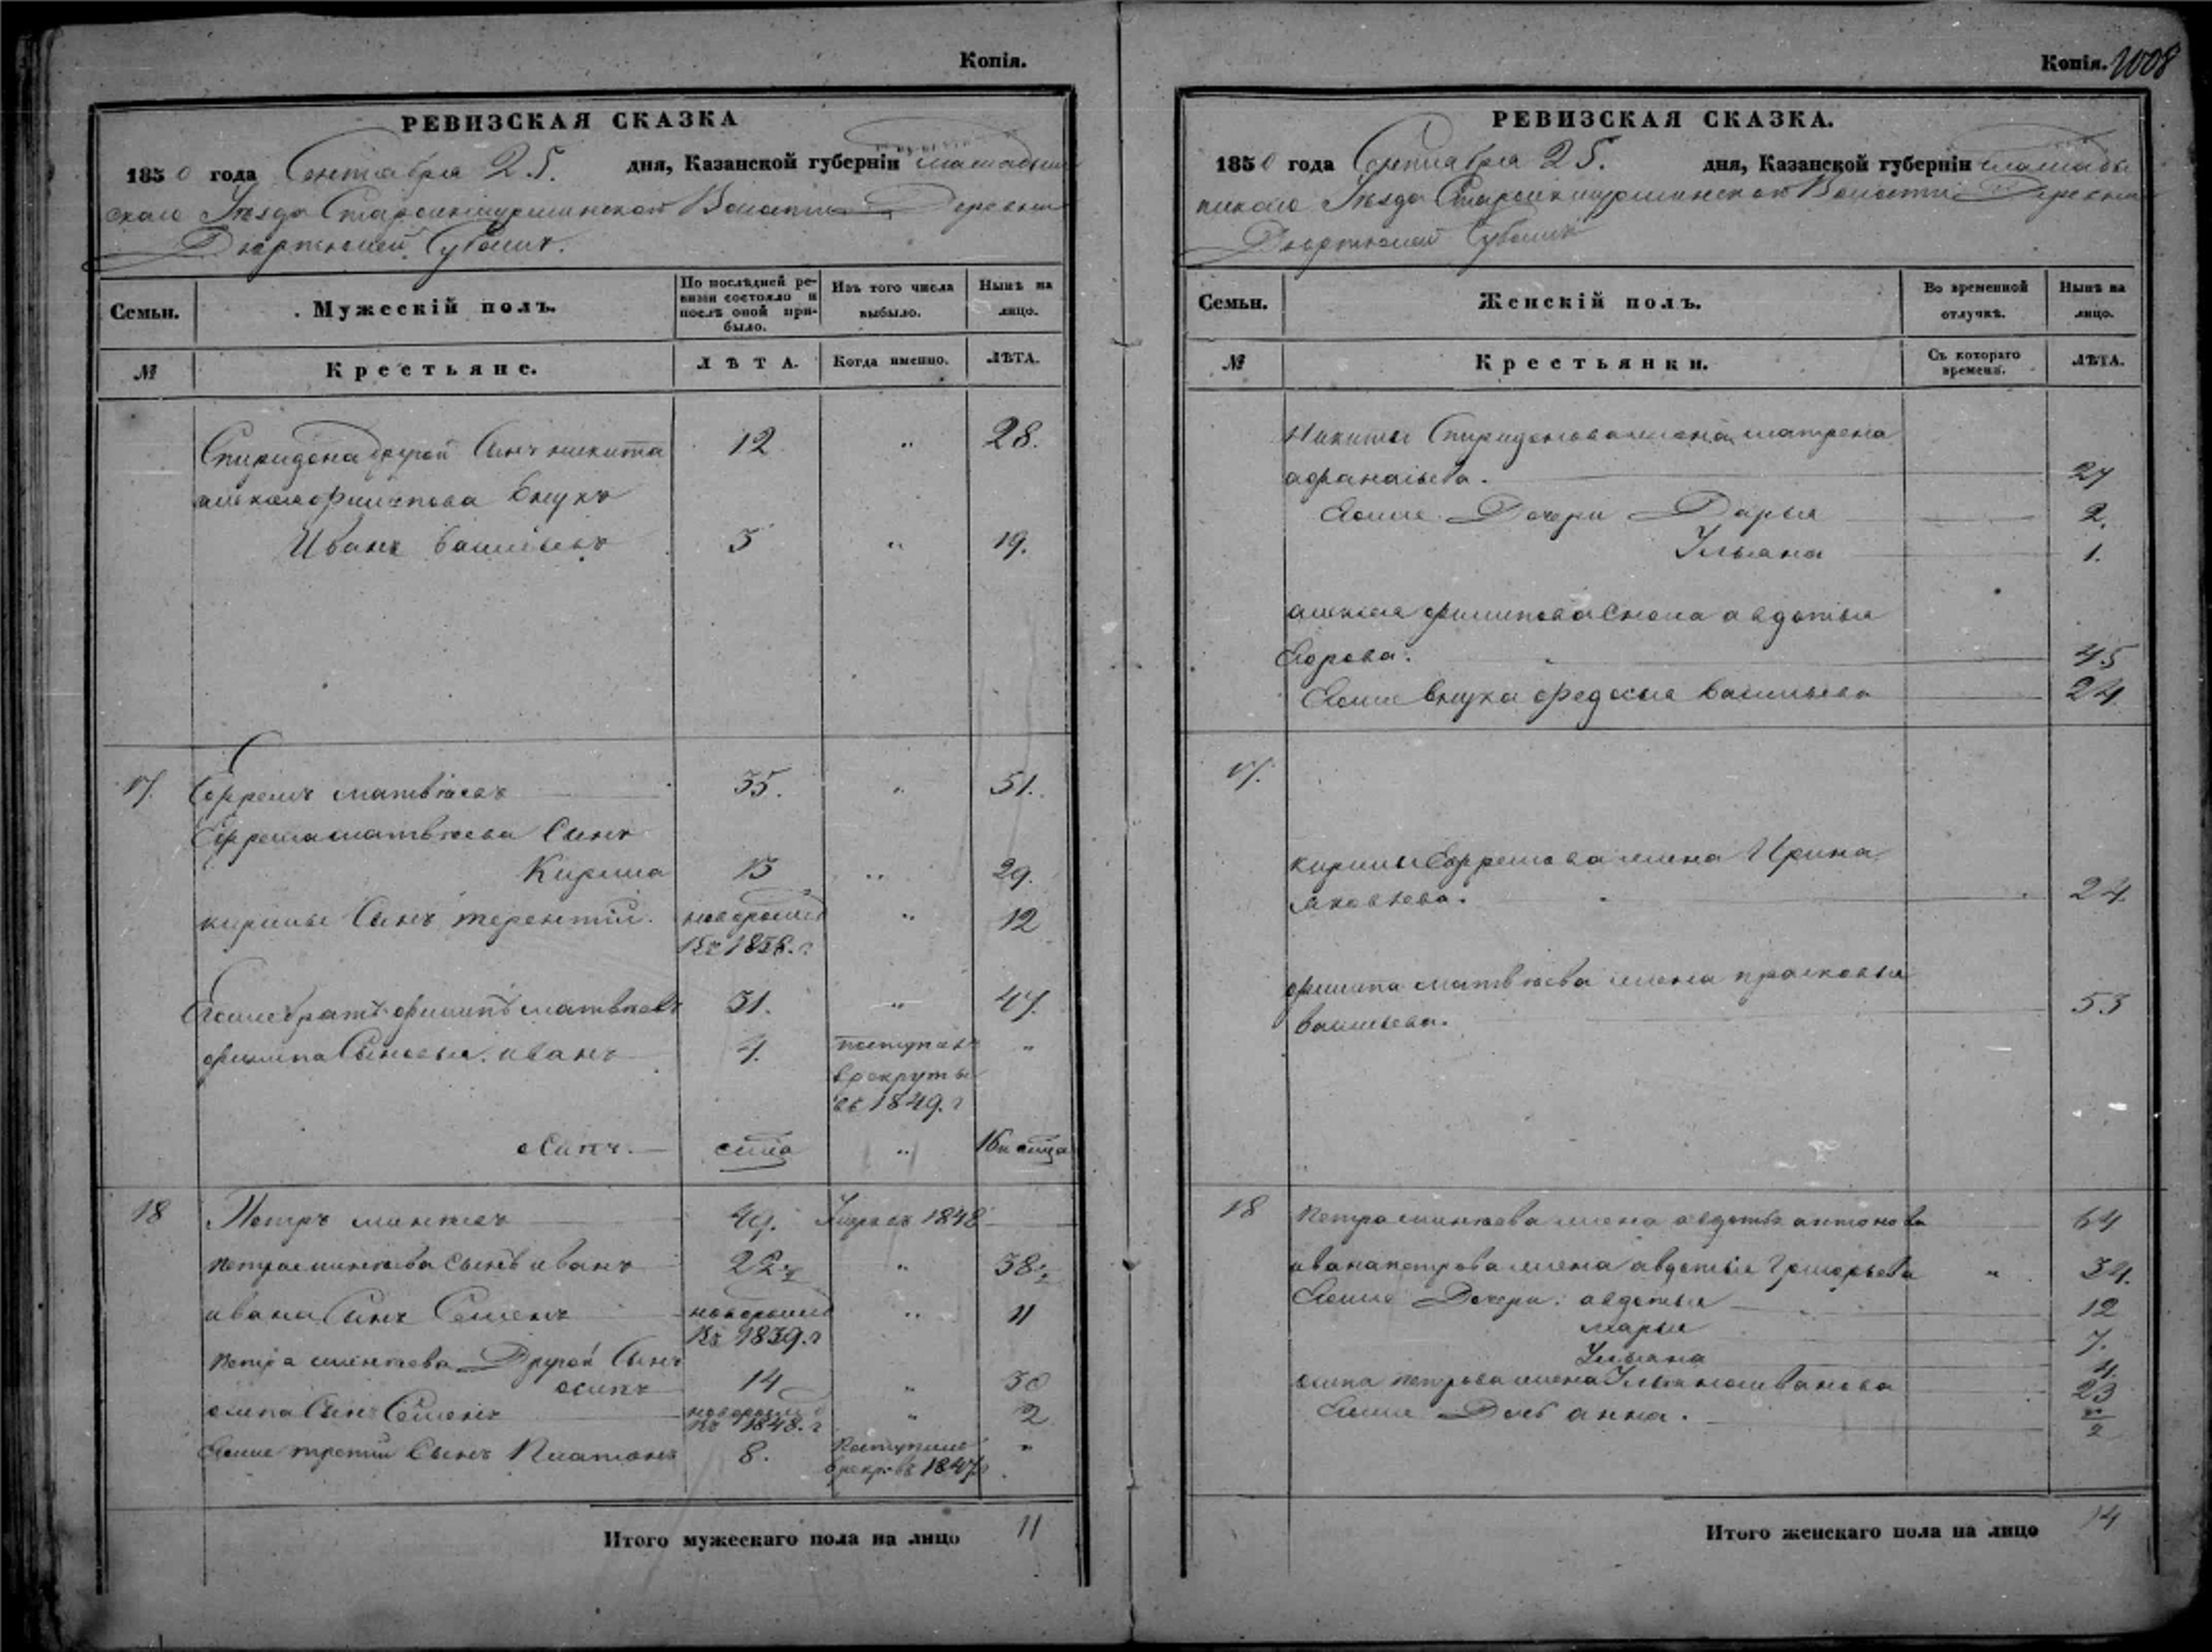 Копія.
РЕВИЗСКАЯ СКАЗКА
1850 года Сентября 25. дня, Казанской губерніи Мамадыш
скаго Уезда Староикшурминской Волости Деревни
Дюртюлей Субаши.
Семьи. Мужескій полъ. По послѣдней ревизіи состояло и послѣ оной прибыло. Изъ того числа выбыло. Нынѣ на лицо.
№ Крестьяне. ЛѢТА. Когда именно. ЛѢТА.
Спиридона другой Сынъ никита 12 " 28.
алексея филипова внукъ
Иванъ васильевъ 3 " 19.
17. Ефремъ матвѣевъ 35. " 51.
Ефрема матвѣева Сынъ
Кирила 13 " 29.
кирилы Сынъ терентій. новорожд " 12
въ 1838. г
Егоже братъ филипъ матвѣевъ 31. " 47.
филипа Сыновья. иванъ 4. поступилъ "
врекруты
въ 1849. г
осипъ. " 16
18 Петръ 49. Умръ въ 1848
петра сынъ иванъ 22 " 38
ивана Сынъ Семенъ новорожд " 11
въ 1839. г
петра Другой Сынъ
осипъ 14 " 30
осипа Сынъ Семенъ новорожд " 2
въ 1848. г
Егоже третий Сынъ Платонъ 8. Поступилъ "
врекр. въ 1847г
Итого мужескаго пола на лицо 11
Копія. 1008
РЕВИЗСКАЯ СКАЗКА.
1850 года Сентября 25. дня, Казанской губерніи Мамады
шскаго Уезда Староикшурминской Волости Деревни
Дюртюлей Субаши
Семьи. Женскій полъ. Во временной отлучкѣ. Нынѣ на лицо.
№ Крестьянки. Съ котораго времени. ЛѢТА.
Никиты Спиридонова жена матрена
афанасьева. 27
Егоже Дочери Дарья 2.
Ульяна 1.
алексея филипова Сноха авдотья
Егорова. 45
Егоже внука федосья васильева 24
17.
кирилы Ефремова жена Ирина
яковлева. 24.
филипа матвѣева жена прасковья
васильева. 53
18 Петра жена авдотья антонова 64
ивана петрова жена авдотья Григорьева " 34.
Егоже Дочери: авдотья 12
марья 7.
Ульяна 4.
осипа петрова жена Ульяна иванова 23
Егоже Дочь анна. 2
Итого женскаго пола на лицо 14